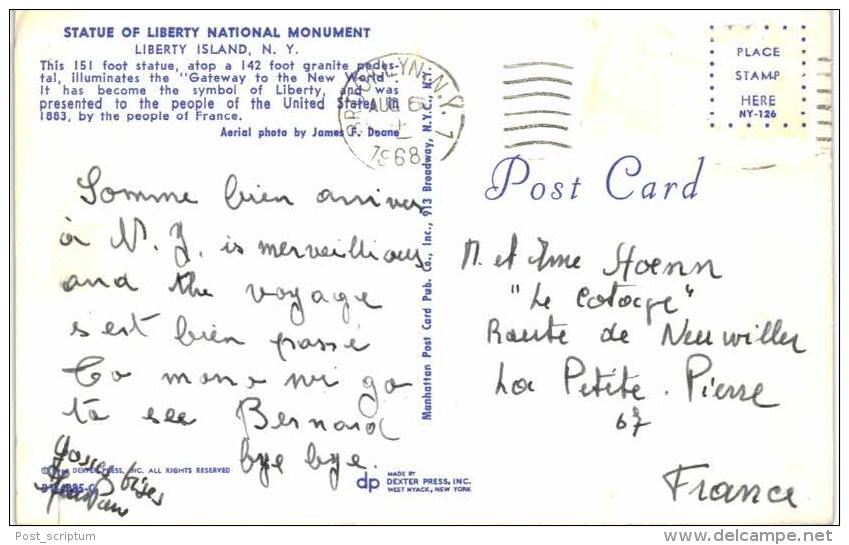 STATUE OF LIBERTY NATIONAL MONUMENT
LIBERTY ISLAND, N. Y.
This 151 foot statue, atop a 142 foot granite pedes-
tal, illuminates the "Gateway to the New World".
It has become the symbol of Liberty, and was
presented to the people of the United States in
1883, by the people of France.
Aerial photo by James F. Doane
BROOKLYN, N.Y. 1
AUG 6
1968
PLACE
STAMP
HERE
NY-126
Post Card
Somme bien arrives
à N. Y. is merveillious
and the voyage
s'est bien passé
To mono wi go
to see Bernard
bye bye.
Bises
Manhattan Post Card Pub. Co., Inc., 913 Broadway, N.Y.C., N.Y.
M. et Mme Hoenn
"Le Cotage"
Route de Neuwiller
La Petite. Pierre
67
France
DEXTER PRESS, INC. ALL RIGHTS RESERVED
dp
MADE BY
DEXTER PRESS, INC.
WEST NYACK, NEW YORK
Post_scriptum
delcampe.net